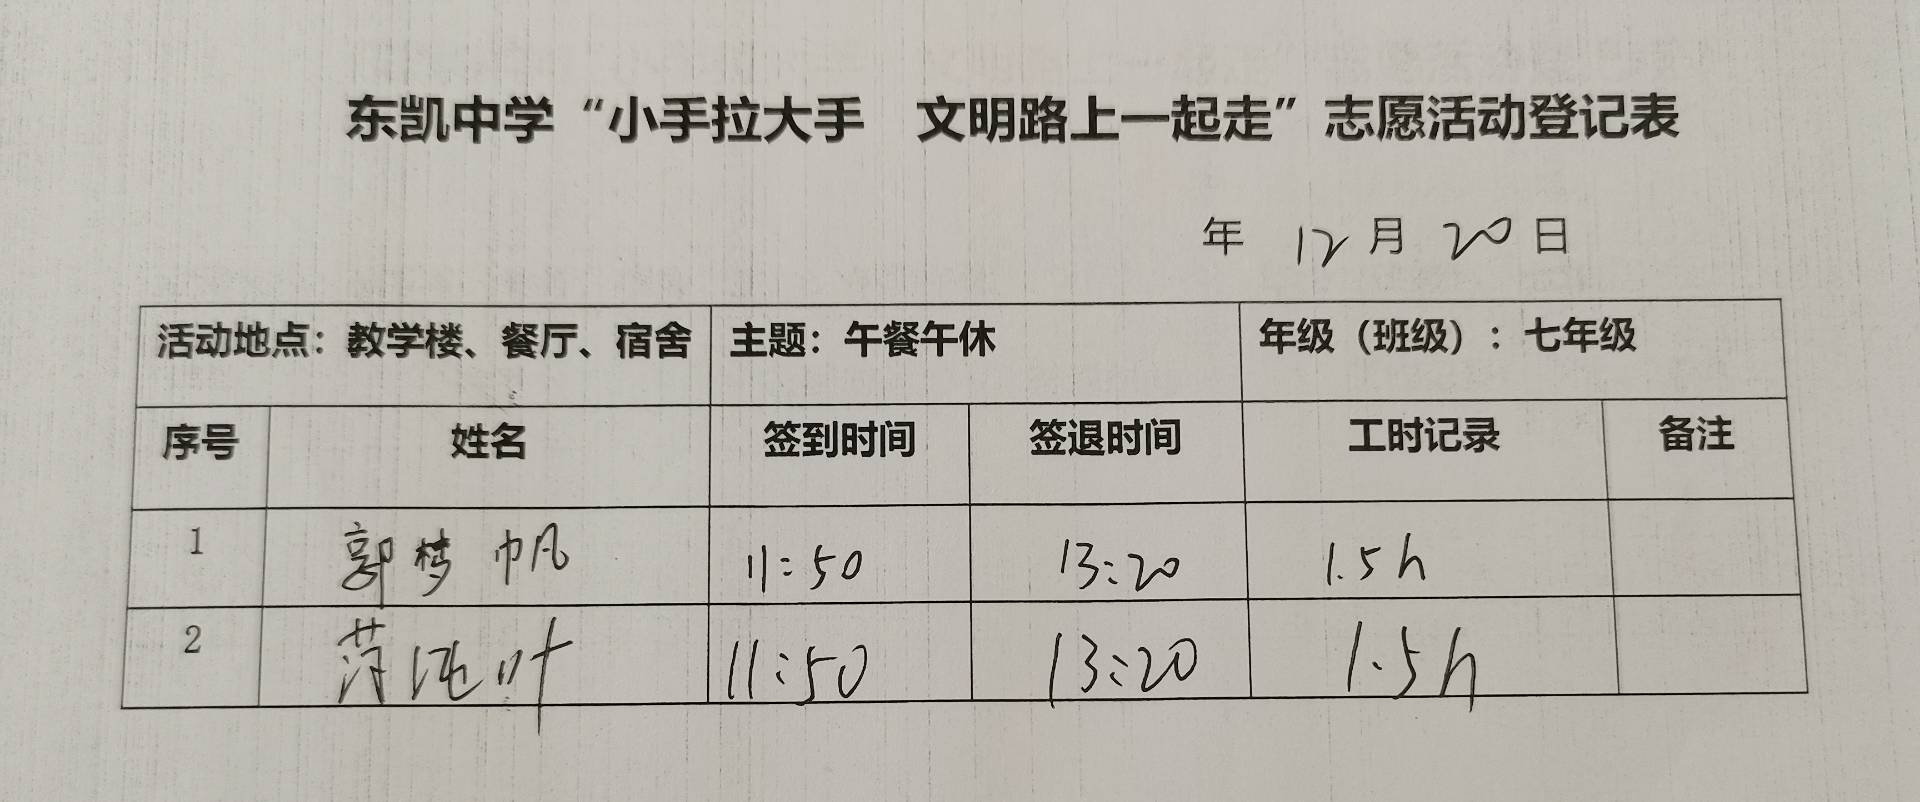 东凯中学“小手拉大手 文明路上一起走”志愿活动登记表
年 12月 20日
活动地点：教学楼、餐厅、宿舍 主题：午餐午休 年级（班级）：七年级
序号 姓名 签到时间 签退时间 工时记录 备注
1 郭梦帆 11:50 13:20 1.5h
2 叶 11:50 13:20 1.5h